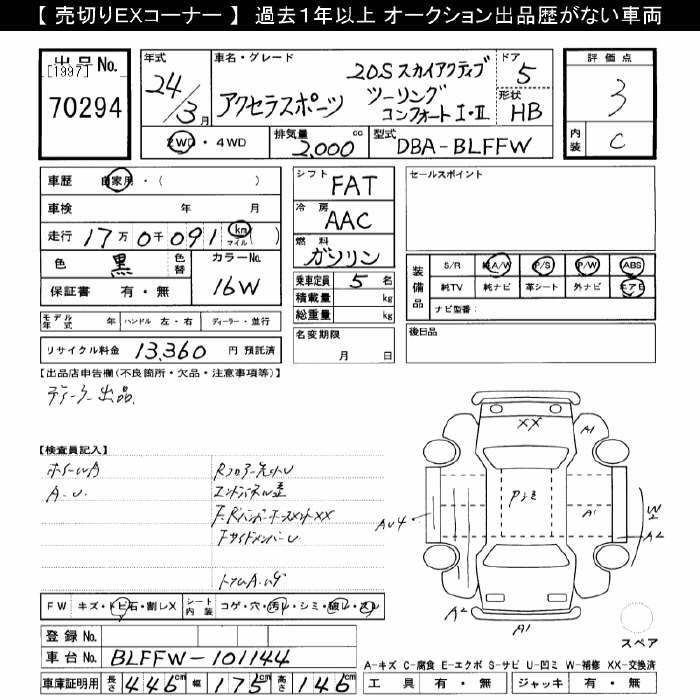 【 売切りEXコーナー 】 過去１年以上 オークション出品歴がない車両
出品No.
[1997]
70294
年式
24/3月
車名・グレード
アクセラスポーツ
20S スカイアクティブ
ツーリング
コンフォート I・II
ドア
5
形状
HB
2WD・4WD
排気量
2,000 cc
型式
DBA-BLFFW
評価点
3
内装
C
車歴 自家用・( )
車検 年 月
走行 17万 0千 091 km マイル ( )
色 黒 色替 カラーNo. 16W
保証書 有・無
モデル年式 年 ハンドル 左・右 ディーラー・並行
リサイクル料金 13,360 円 預託済
シフト FAT
冷房 AAC
燃料 ガソリン
乗車定員 5 名
積載量 kg
総重量 kg
名変期限
月 日
セールスポイント
装備品
S/R 純A/W P/S P/W ABS
純TV 純ナビ 革シート 外ナビ エアB
ナビ型番:
後日品
【出品店申告欄(不良箇所・欠品・注意事項等)】
ディーラー出品
【検査員記入】
ホイールA
A.U.
エンドパネル歪
FサイドメンバーU
XX
A1
A1
AU4
W2
A2
A2
A1
FW キズ・トビ石・割レX シート内装 コゲ・穴・汚レ・シミ・破レ・スレ
登録No.
車台No. BLFFW-101144
車庫証明用 長さ 446cm 幅 175cm 高さ 146cm
スペア
A-キズ C-腐食 E-エクボ S-サビ U-凹ミ W-補修 XX-交換済
工具 有・無 ジャッキ 有・無